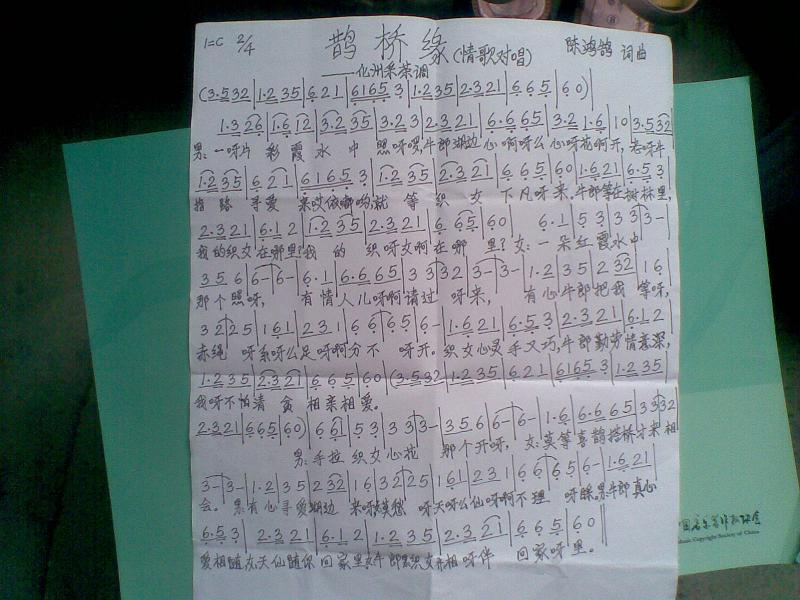 1=C 2/4 鹊桥缘(情歌对唱) 陈鸿鹄 词曲
——化州采茶调
(3·532|1·235|621|6165 3|1·235|2·321|665|60)|
1·326|1·612|3·235|3·23|2·321|6·665|3·21·6|10|3·532|
男:一呀片 彩霞水中 照呀照,牛郎湖边心啊呀么心呀花啊开,老呀牛
1·235|621|61653|1·235|2·321|665|60|1·621|6·53|
指路寻爱 来哎依嘟哟,就等织女下凡呀来.牛郎等在树林里,
2·321|6·12|1·235|2·321|665|60| 6·1|53|33|3-|
我的织女在哪里?我的 织呀女啊在哪里?女:一朵红霞水中
356|6-|6-|6·1|6·665|33|332|3-|3-|1·2|35|232|16|
那个照呀, 有情人儿呀啊请过 呀来, 有心牛郎把我 等呀,
32|25|161|231|66|65|6-|1·621|6·53|2·321|6·12|
赤绳 呀系呀么足呀啊分不 呀开.织女心灵手又巧,牛郎勤劳情意深,
1·235|2·321|665|60|(3·532|1·235|621|61653|1·235|
我呀不怕清贫 相亲相爱。
2·321|665|60)|661|53|33|3-|356|6-|6-|1·6|6·665|33|332|
男:手拉织女心花 那个开呀, 女:莫等喜鹊搭桥才来相
3-|3-|1·2|35|232|16|32|25|161|231|66|65|6-|1·621|
会. 男:有心寻爱湖边 来呀 呀天呀么仙呀啊不理 呀睬.男:牛郎真心
6·53|2·321|6·12|1·235|2·321|665|60‖
爱相随,女:天仙随你回家里 牛郎 织女 相呀伴 回家呀里。
Copyright Society of China